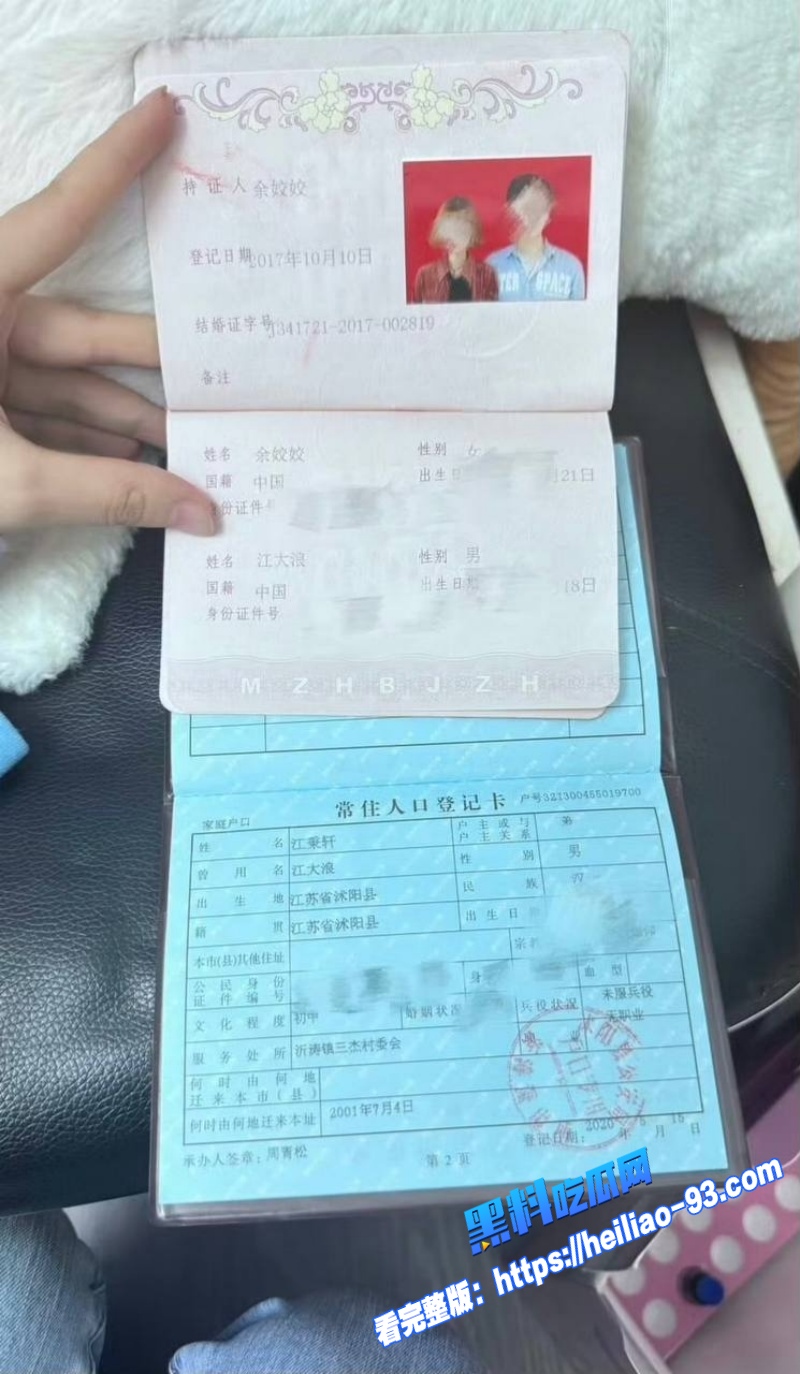 持证人 余姣姣
登记日期 2017年10月10日
结婚证字号 J341721-2017-002819
备注
姓名 余姣姣 性别 女
国籍 中国 出生日 月21日
身份证件号
姓名 江大浪 性别 男
国籍 中国 出生日期 18日
身份证件号
MZHBJZH
常住人口登记卡
家庭户口 户号321300455019700
姓名 江秉轩 户主或与户主关系 弟
曾用名 江大浪 性别 男
出生地 江苏省沭阳县 民族 汉
籍贯 江苏省沭阳县 出生日
本市(县)其他住址
公民身份证件编号 身 血型
文化程度 初中 婚姻状况 兵役状况 未服兵役
服务处所 沂涛镇三杰村委会 无职业
何时由何地迁来本市(县)
何时由何地迁来本址 2001年7月4日
承办人签章：周青松 第2页 登记日期： 2020年 月15日
黑料吃瓜网
看完整版：https://heiliao-93.com